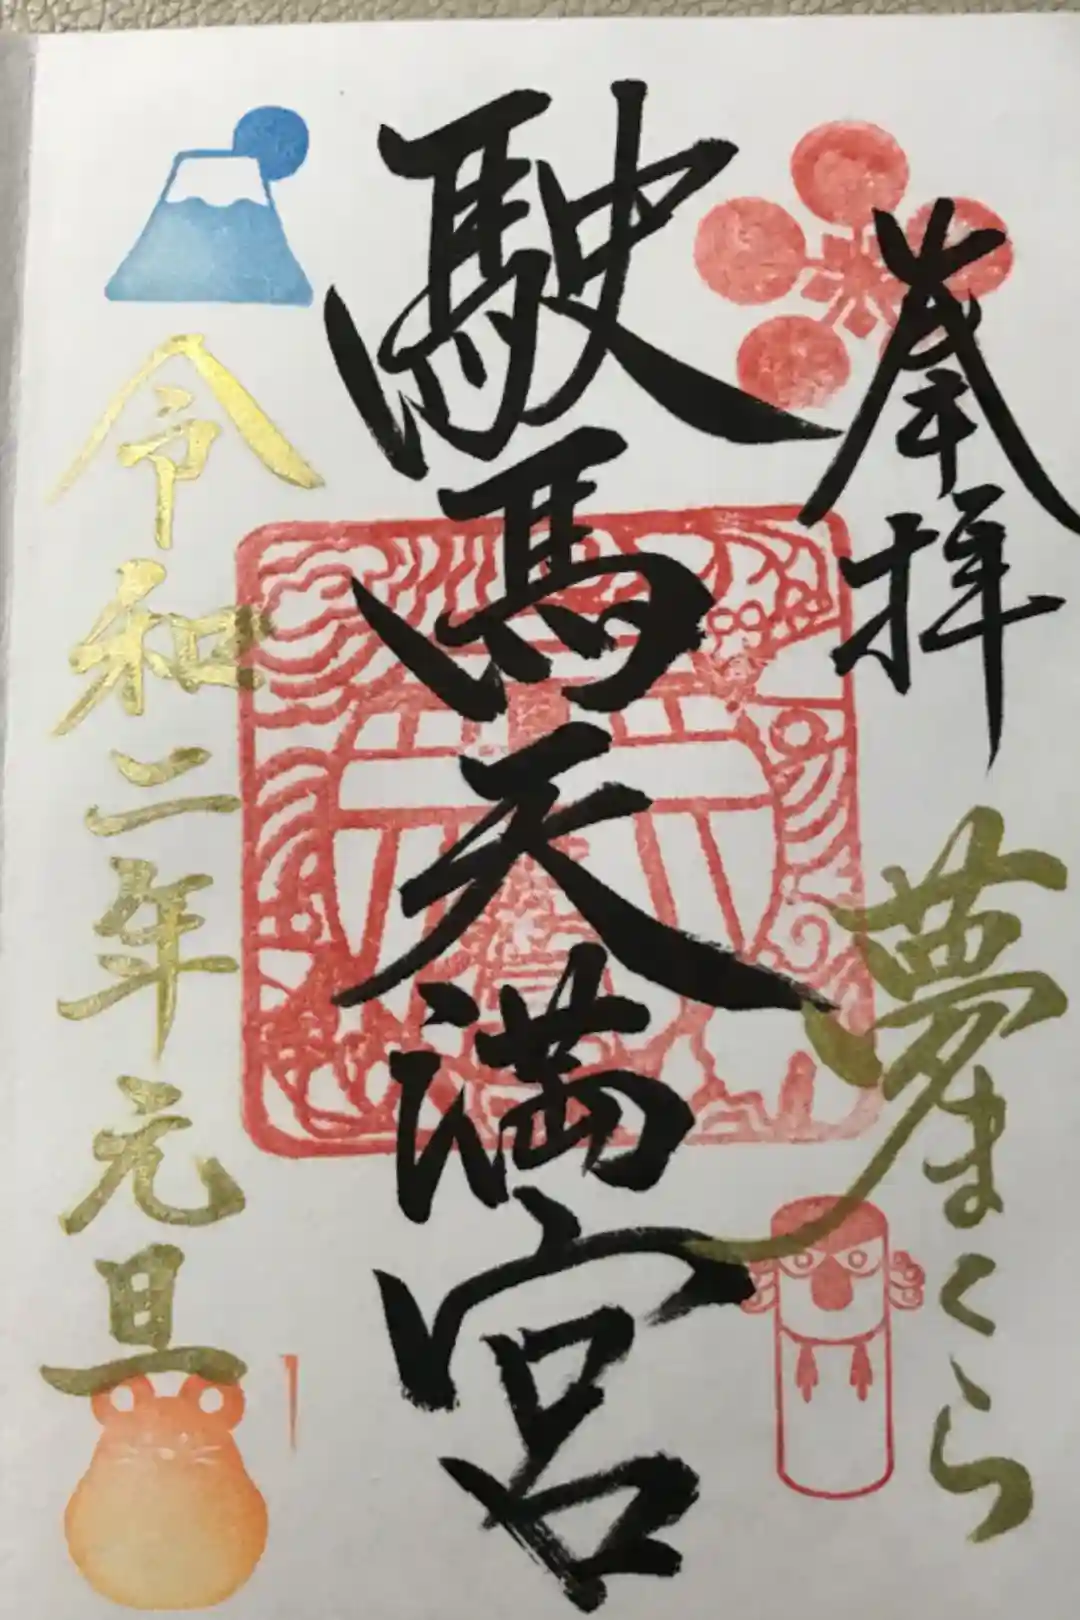 奉拝
夢まくら
駛馬天満宮
令和二年元旦